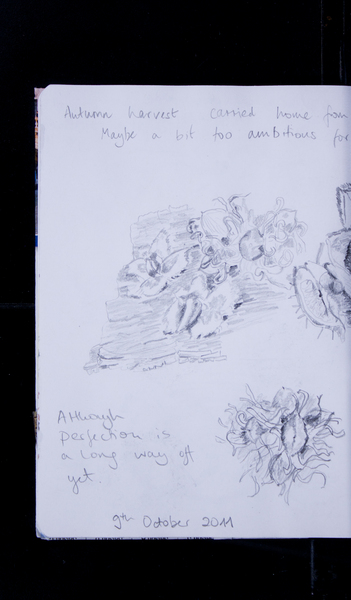 Autumn harvest carried home from
Maybe a bit too ambitious for
Although
perfection is
a long way off
yet.
9th October 2011